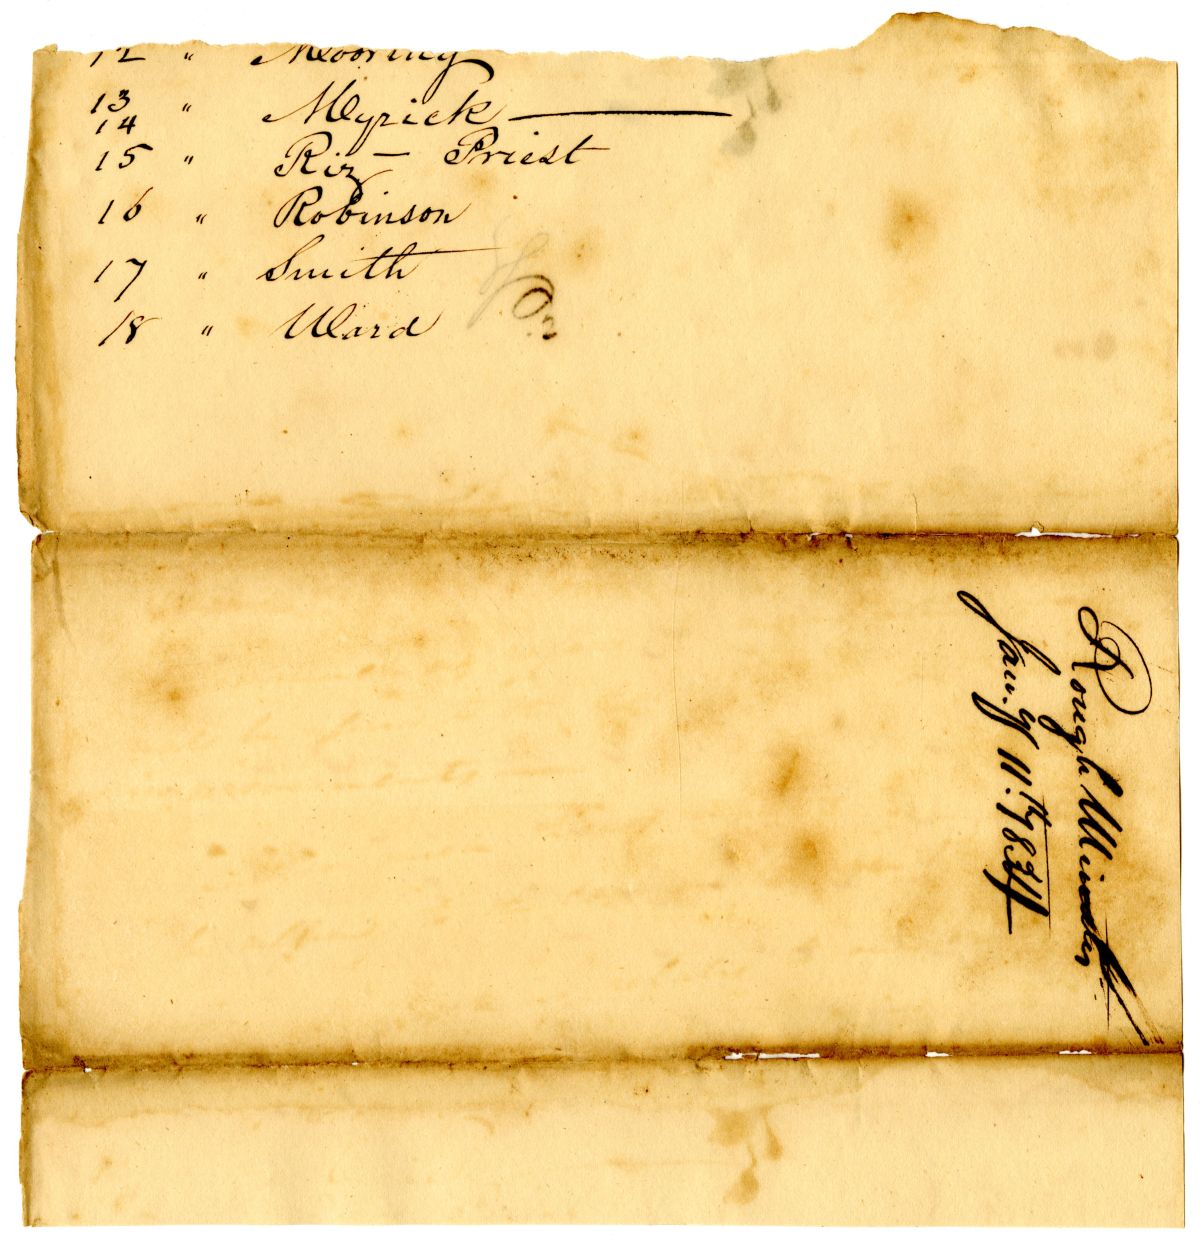 12 " Mooring
13 " Myrick —
14
15 " Riz — Priest
16 " Robinson
17 " Smith
18 " Ward
Rough Minutes
Jan.y 11.th 1834